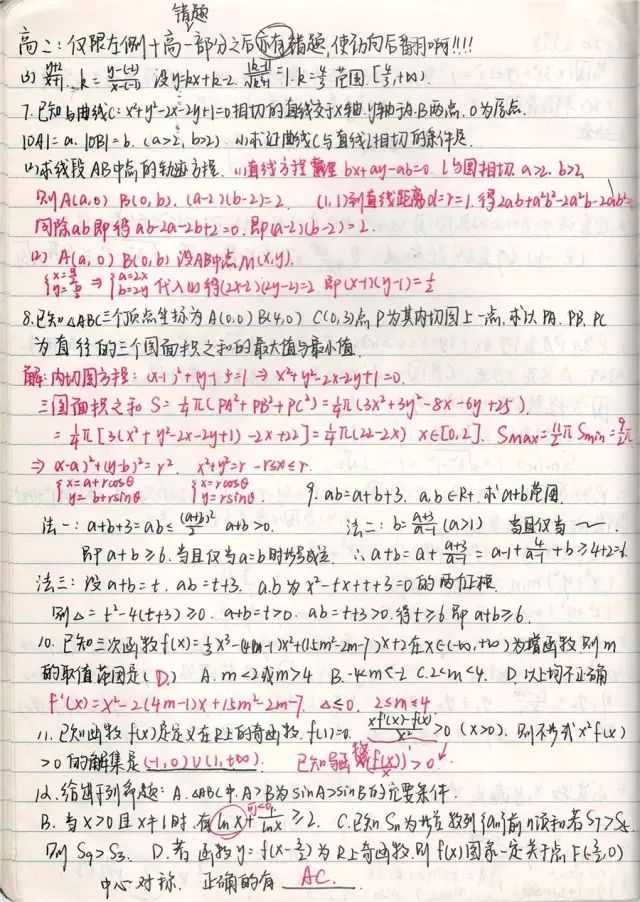 错题
高二:仅限左侧+高一部分之后亦有错题,使劲向后翻啊!!!!
(3) y+2/x+1. k=y-(-2)/x-(-1) 设y=kx+k-2. |2k-3|/√k²+1=1. k=4/3 范围.[4/3,+∞).
7.已知与曲线C:x²+y²-2x-2y+1=0相切的直线交于x轴.y轴于A.B两点.O为原点.
|OA|=a. |OB|=b. (a>2, b>2). (1)求证曲线C与直线l相切的条件是.
(2)求线段AB中点的轨迹方程. (1)直线方程 bx+ay-ab=0. l与圆相切. a>2. b>2
则A(a,0) B(0,b). (a-2)(b-2)=2. (1,1)到直线距离d=r=1.得2ab+a²b²-2a²b-2ab²=
同除ab即得ab-2a-2b+2=0.即(a-2)(b-2)=2.
(2) A(a,0) B(0,b) 设AB中点M(x,y).
{x=a/2 y=b/2 ⇒ {a=2x b=2y 代入(1)得(2x-2)(2y-2)=2 即(x-1)(y-1)=1/2
8.已知△ABC三个顶点坐标为A(0,0) B(4,0) C(0,3)点P为其内切圆上一点.求以PA.PB.PC
为直径的三个圆面积之和的最大值与最小值.
解:内切圆方程:(x-1)²+(y-1)²=1 ⇒ x²+y²-2x-2y+1=0.
三圆面积之和 S=1/4π(PA²+PB²+PC²)=1/4π(3x²+3y²-8x-6y+25).
=1/4π[3(x²+y²-2x-2y+1)-2x+22]=1/4π(22-2x) x∈[0,2]. Smax=11/2π Smin=9/2π
⇒ (x-a)²+(y-b)²=r². x²+y²=r -r≤x≤r.
{x=a+rcosθ y=b+rsinθ {x=rcosθ y=rsinθ. 9. ab=a+b+3. a,b∈R+.求a+b范围.
法一:a+b+3=ab≤(a+b)²/4 a+b>0. 法二:b=a+3/a-1(a>1) 当且仅当
即a+b≥6.当且仅当a=b时等号成立. ∴a+b=a+a+3/a-1=a-1+4/a-1+b≥4+2=6
法三:设a+b=t. ab=t+3. a.b为x²-tx+t+3=0的两正根
则△=t²-4(t+3)≥0. a+b=t>0. ab=t+3>0.得t≥6即a+b≥6.
10.已知三次函数f(x)=1/3x³-(4m-1)x²+(15m²-2m-7)x+2在x∈(-∞,+∞)为增函数则m
的取值范围是(D) A.m<2或m>4 B.-4<m<-2 C.2<m<4. D.以上均不正确
f'(x)=x²-2(4m-1)x+15m²-2m-7. △≤0. 2≤m≤4.
11.已知函数f(x)是定义在R上的奇函数.f(1)=0. xf'(x)-f(x)/x²>0 (x>0).则不等式x²f(x)
>0的解集是(-1,0)∪(1,+∞). 已知导函数(f(x)/x)'>0
12.给出下列命题:A.△ABC中.A>B为sinA>sinB的充要条件.
可<0
B.当x>0且x≠1时.有lnx+1/lnx≥2. C.已知Sn为等差数列{an}前n项和若S7>S5.
则S9>S3. D.若函数y=f(x-3/2)为R上奇函数.则f(x)图象一定关于点F(3/2,0)
中心对称. 正确的有 AC.